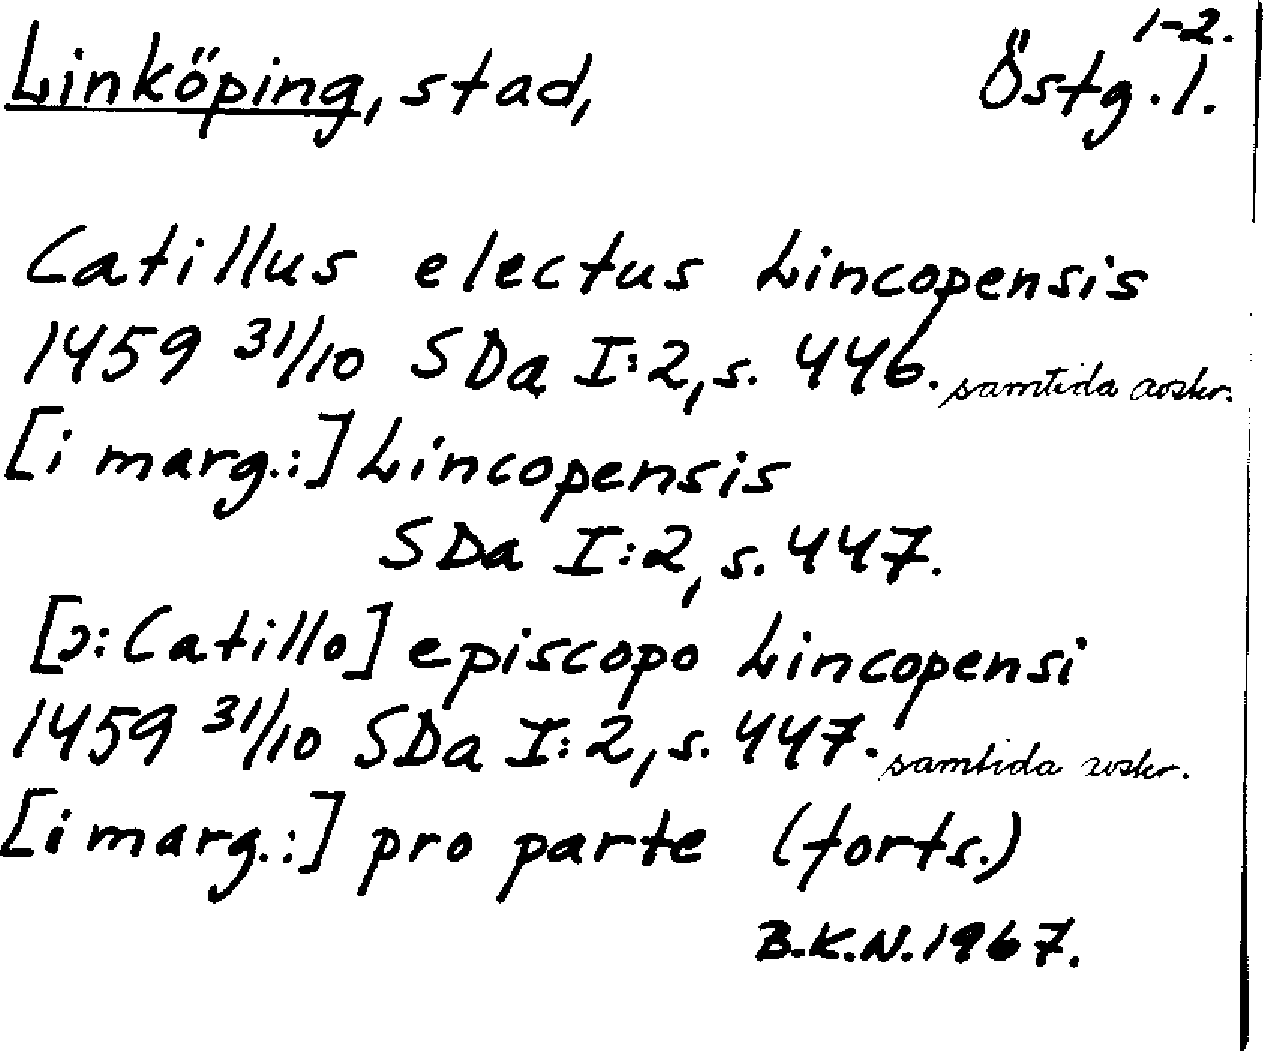 1-2.
Linköping, stad, Östg. l.
Catillus electus Lincopensis
1459 31/10 SDa I:2, s. 446. samtida avskr.
[i marg.:] Lincopensis
SDa I:2, s. 447.
[ɔ: Catillo] episcopo Lincopensi
1459 31/10 SDa I:2, s. 447. samtida avskr.
[i marg.:] pro parte (forts.)
B.K.N. 1967.